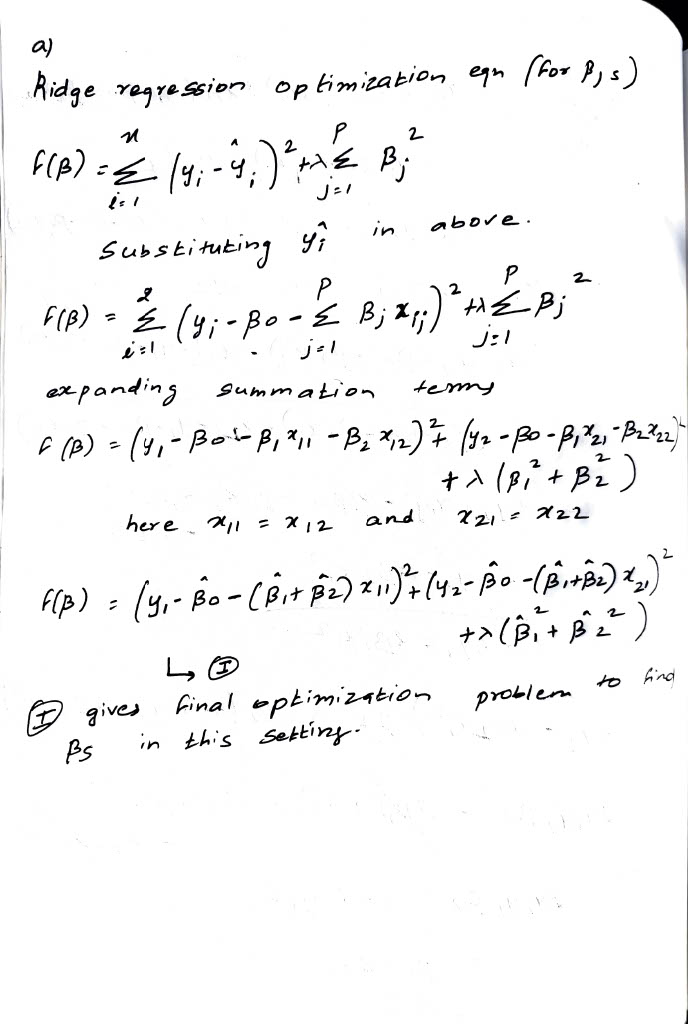 a)
Ridge regression optimization eqn (for βjs)
f(β) = Σ_{i=1}^{n} (yi - ŷi)² + λ Σ_{j=1}^{P} βj²
Substituting ŷi in above.
f(β) = Σ_{i=1}^{2} (yi - β0 - Σ_{j=1}^{P} βj xij)² + λ Σ_{j=1}^{P} βj²
expanding summation terms
f(β) = (y1 - β0 - β1 x11 - β2 x12)² + (y2 - β0 - β1 x21 - β2 x22)²
+ λ (β1² + β2²)
here x11 = x12 and x21 = x22
f(β) = (y1 - β̂0 - (β̂1 + β̂2) x11)² + (y2 - β̂0 - (β̂1 + β̂2) x21)²
+ λ (β̂1² + β̂2²)
↳ Ⓘ
Ⓘ gives final optimization problem to find
βs in this setting.